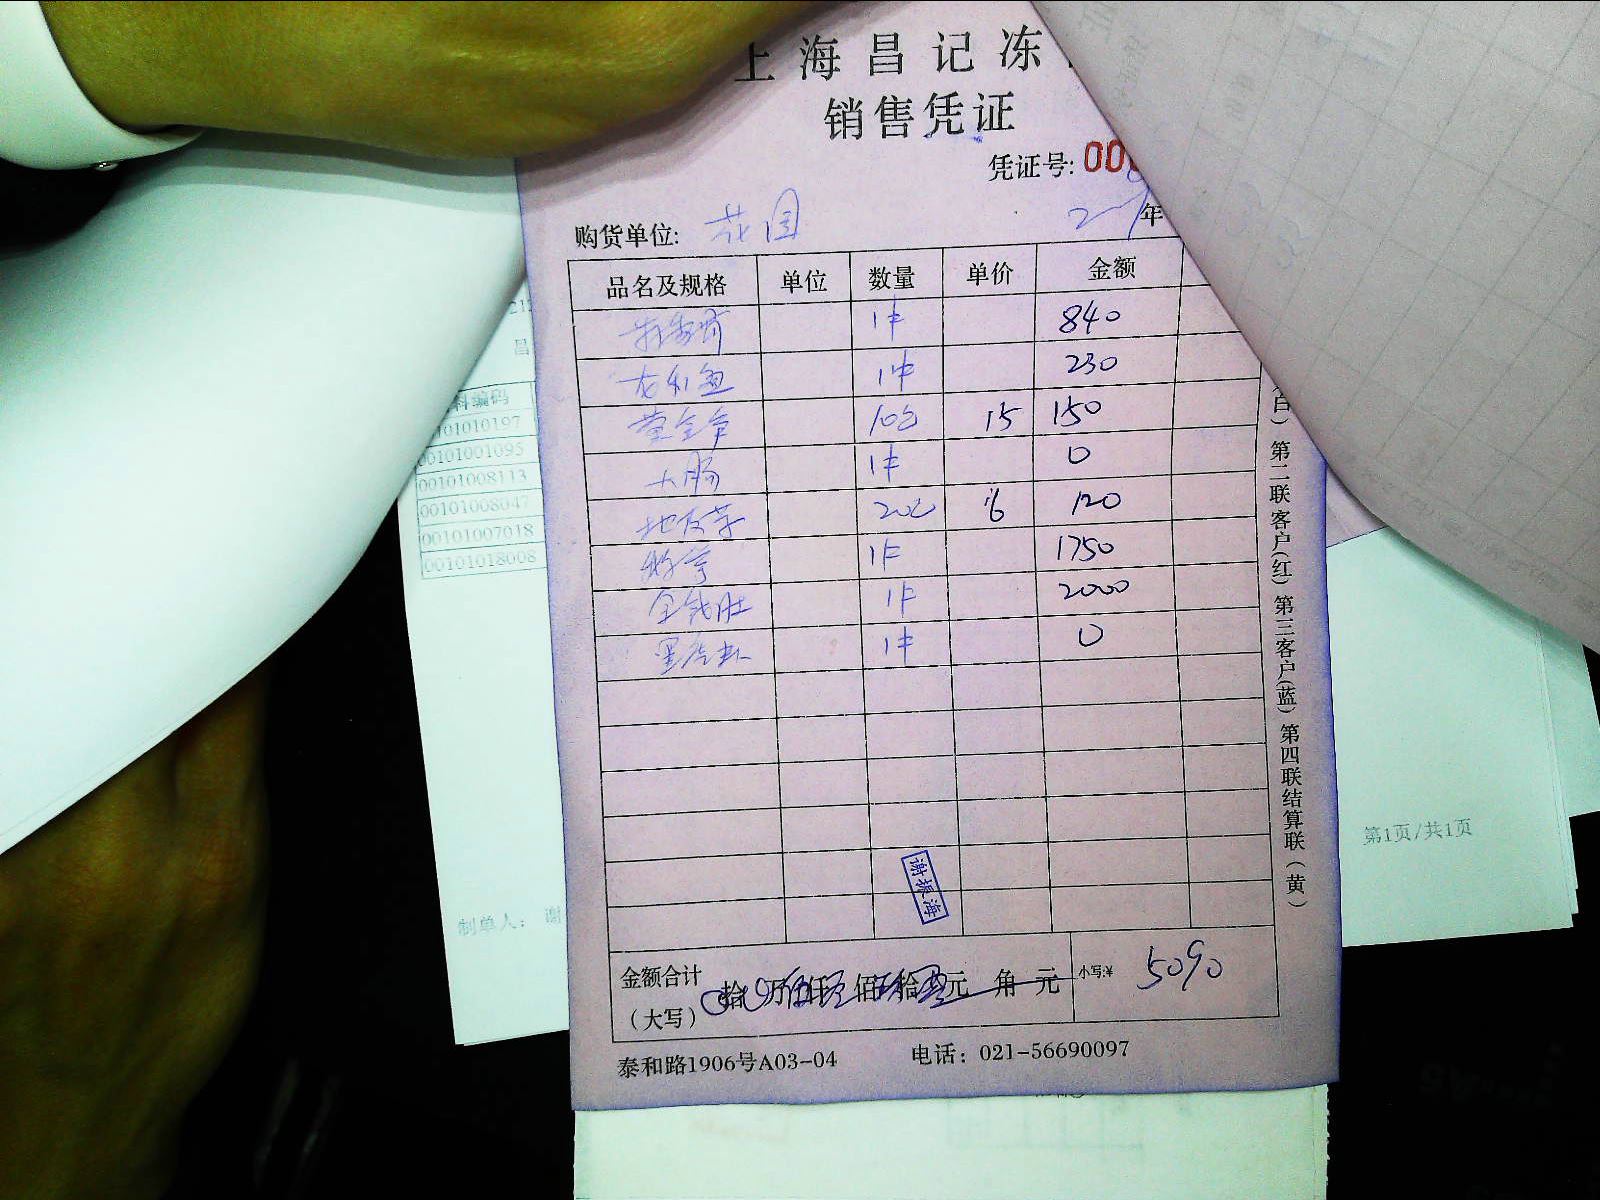 上海昌记冻
销售凭证
凭证号: 00
购货单位: 花园 年
品名及规格 单位 数量 单价 金额
1件 840
龙利鱼 1件 230
黄金 10包 15 150
大肠 1件 0
地 20包 6 120
1件 1750
金钱肚 1件 2000
黑虎虾 1件 0
谢振海
金额合计
(大写) 拾 万 仟 佰 拾 元 角 元 小写:¥ 5090
泰和路1906号A03-04 电话: 021-56690097
白) 第二联客户(红) 第三客户(蓝) 第四联结算联(黄)
昌
料编码
01010197
00101001095
00101008113
00101008047
00101007018
00101018008
制单人: 谢
第1页/共1页